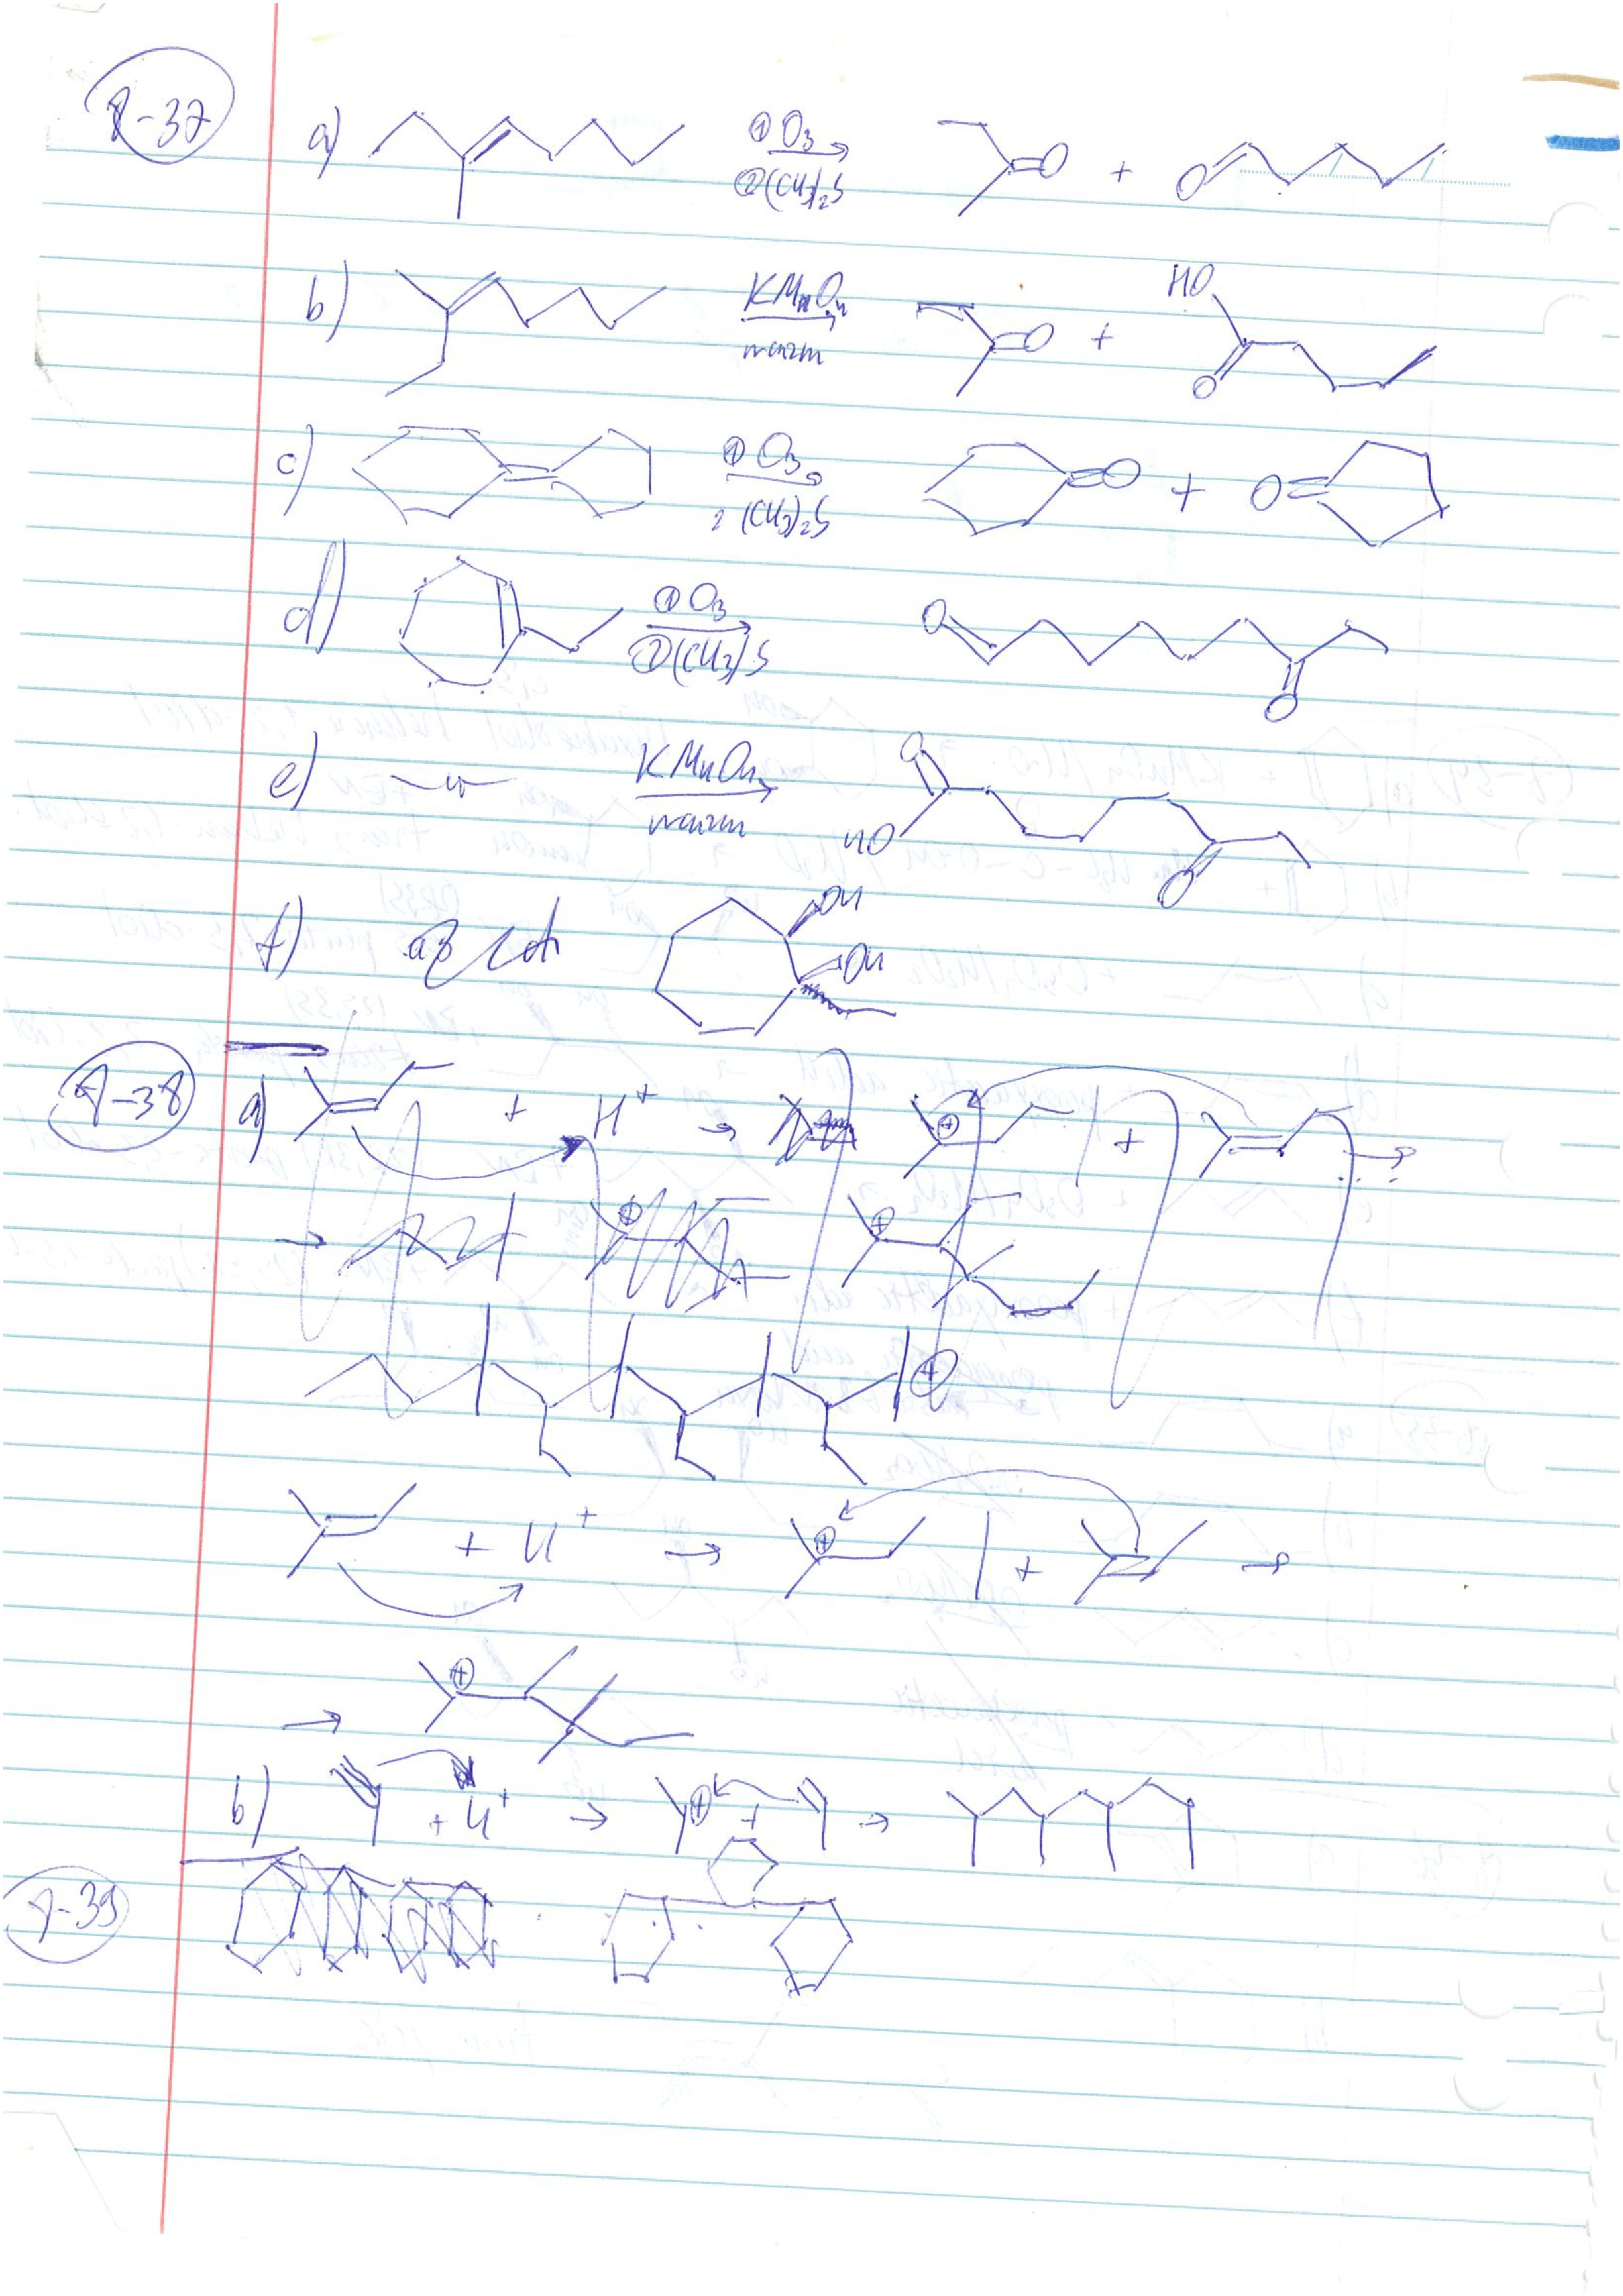 8-37
a) ① O3 ② (CH3)2S =O + O=
b) KMnO4 warm =O + HO O
c) ① O3 2 (CH3)2S =O + O=
d) ① O3 ② (CH3) S O O
e) KMnO4 warm O HO O
f) OH OH
8-38 a) + H+ → ⊕ + →
→ ⊕ ⊕
⊕
+ H+ → ⊕ + →
→ ⊕
b) + H+ → ⊕ + →
8-39